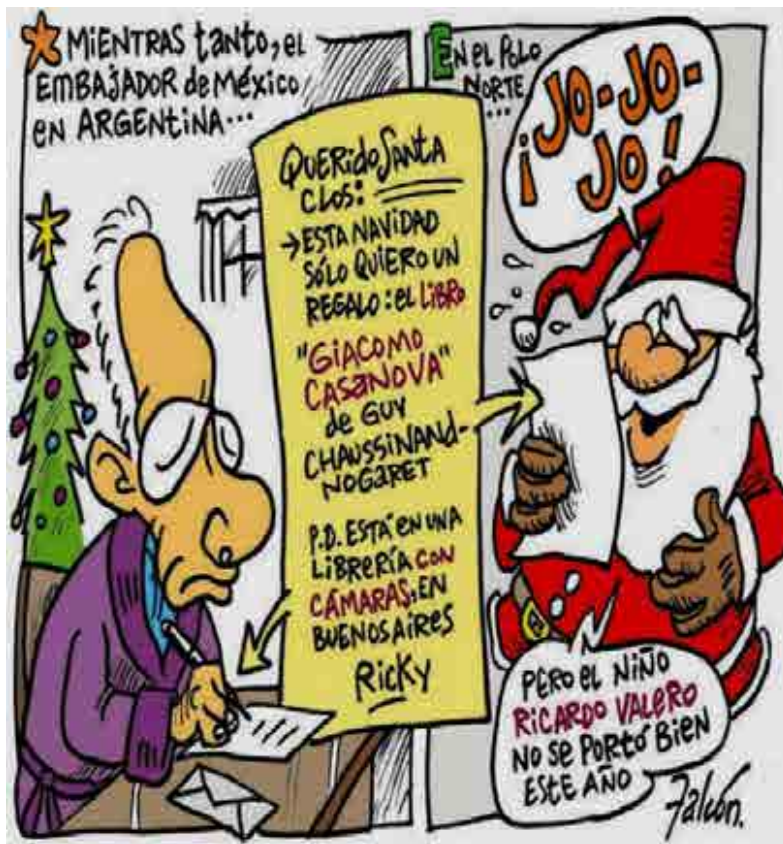 MIENTRAS tanto, el
EMBAJADOR de México
en ARGENTINA...
QUERIDO SANTA
CLOS:
→ ESTA NAVIDAD
SÓLO QUIERO UN
REGALO: el LIBRO
"GIACOMO
CASANOVA"
de GUY
CHAUSSINAND-
NOGARET
P.D. ESTÁ EN UNA
LIBRERÍA CON
CÁMARAS, EN
BUENOS AIRES
RICKY
EN EL POLO
NORTE
...
¡JO-JO-
JO!
PERO EL NIÑO
RICARDO VALERO
NO SE PORTÓ BIEN
ESTE AÑO
Falcón.